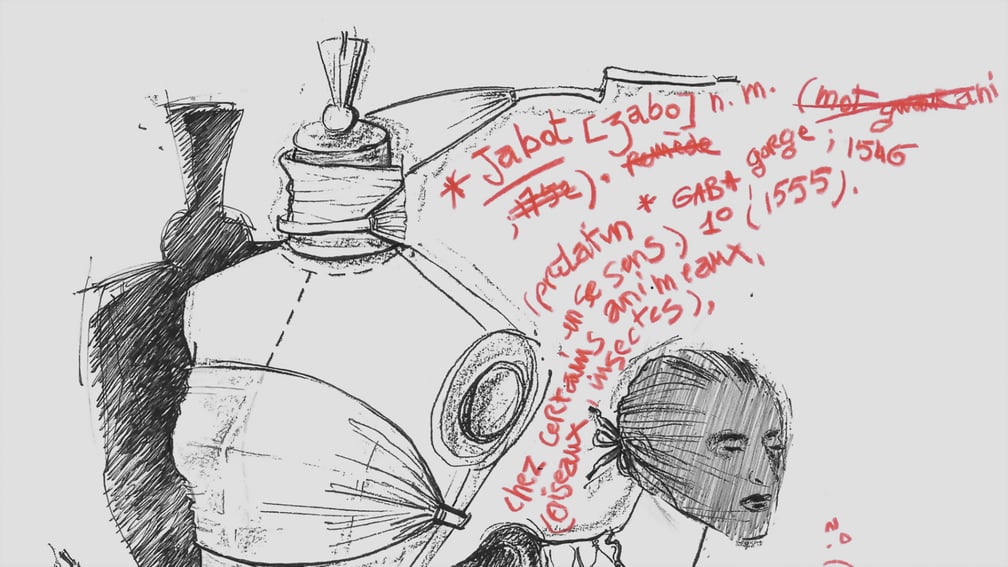 * Jabot [ʒabo] n. m. (mot
; 1752). Remède
* GABA gorge ; 1546
(prélatin
en ce sens) 1º (1555).
chez certains animeaux,
(oiseaux, insectes),